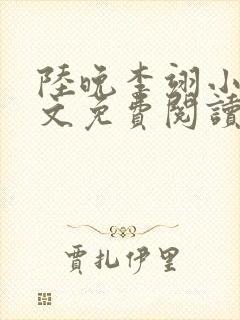 陸晚李翊小
文免費閱讀
賈扎伊里